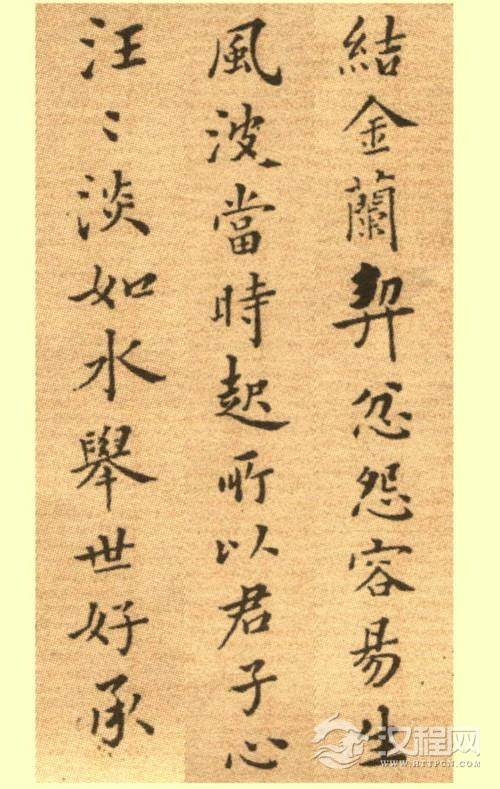 結金蘭契忿怨容易生
風波當時起所以君子心
汪〻淡如水舉世好承
汉程网
HTTPCN.COM